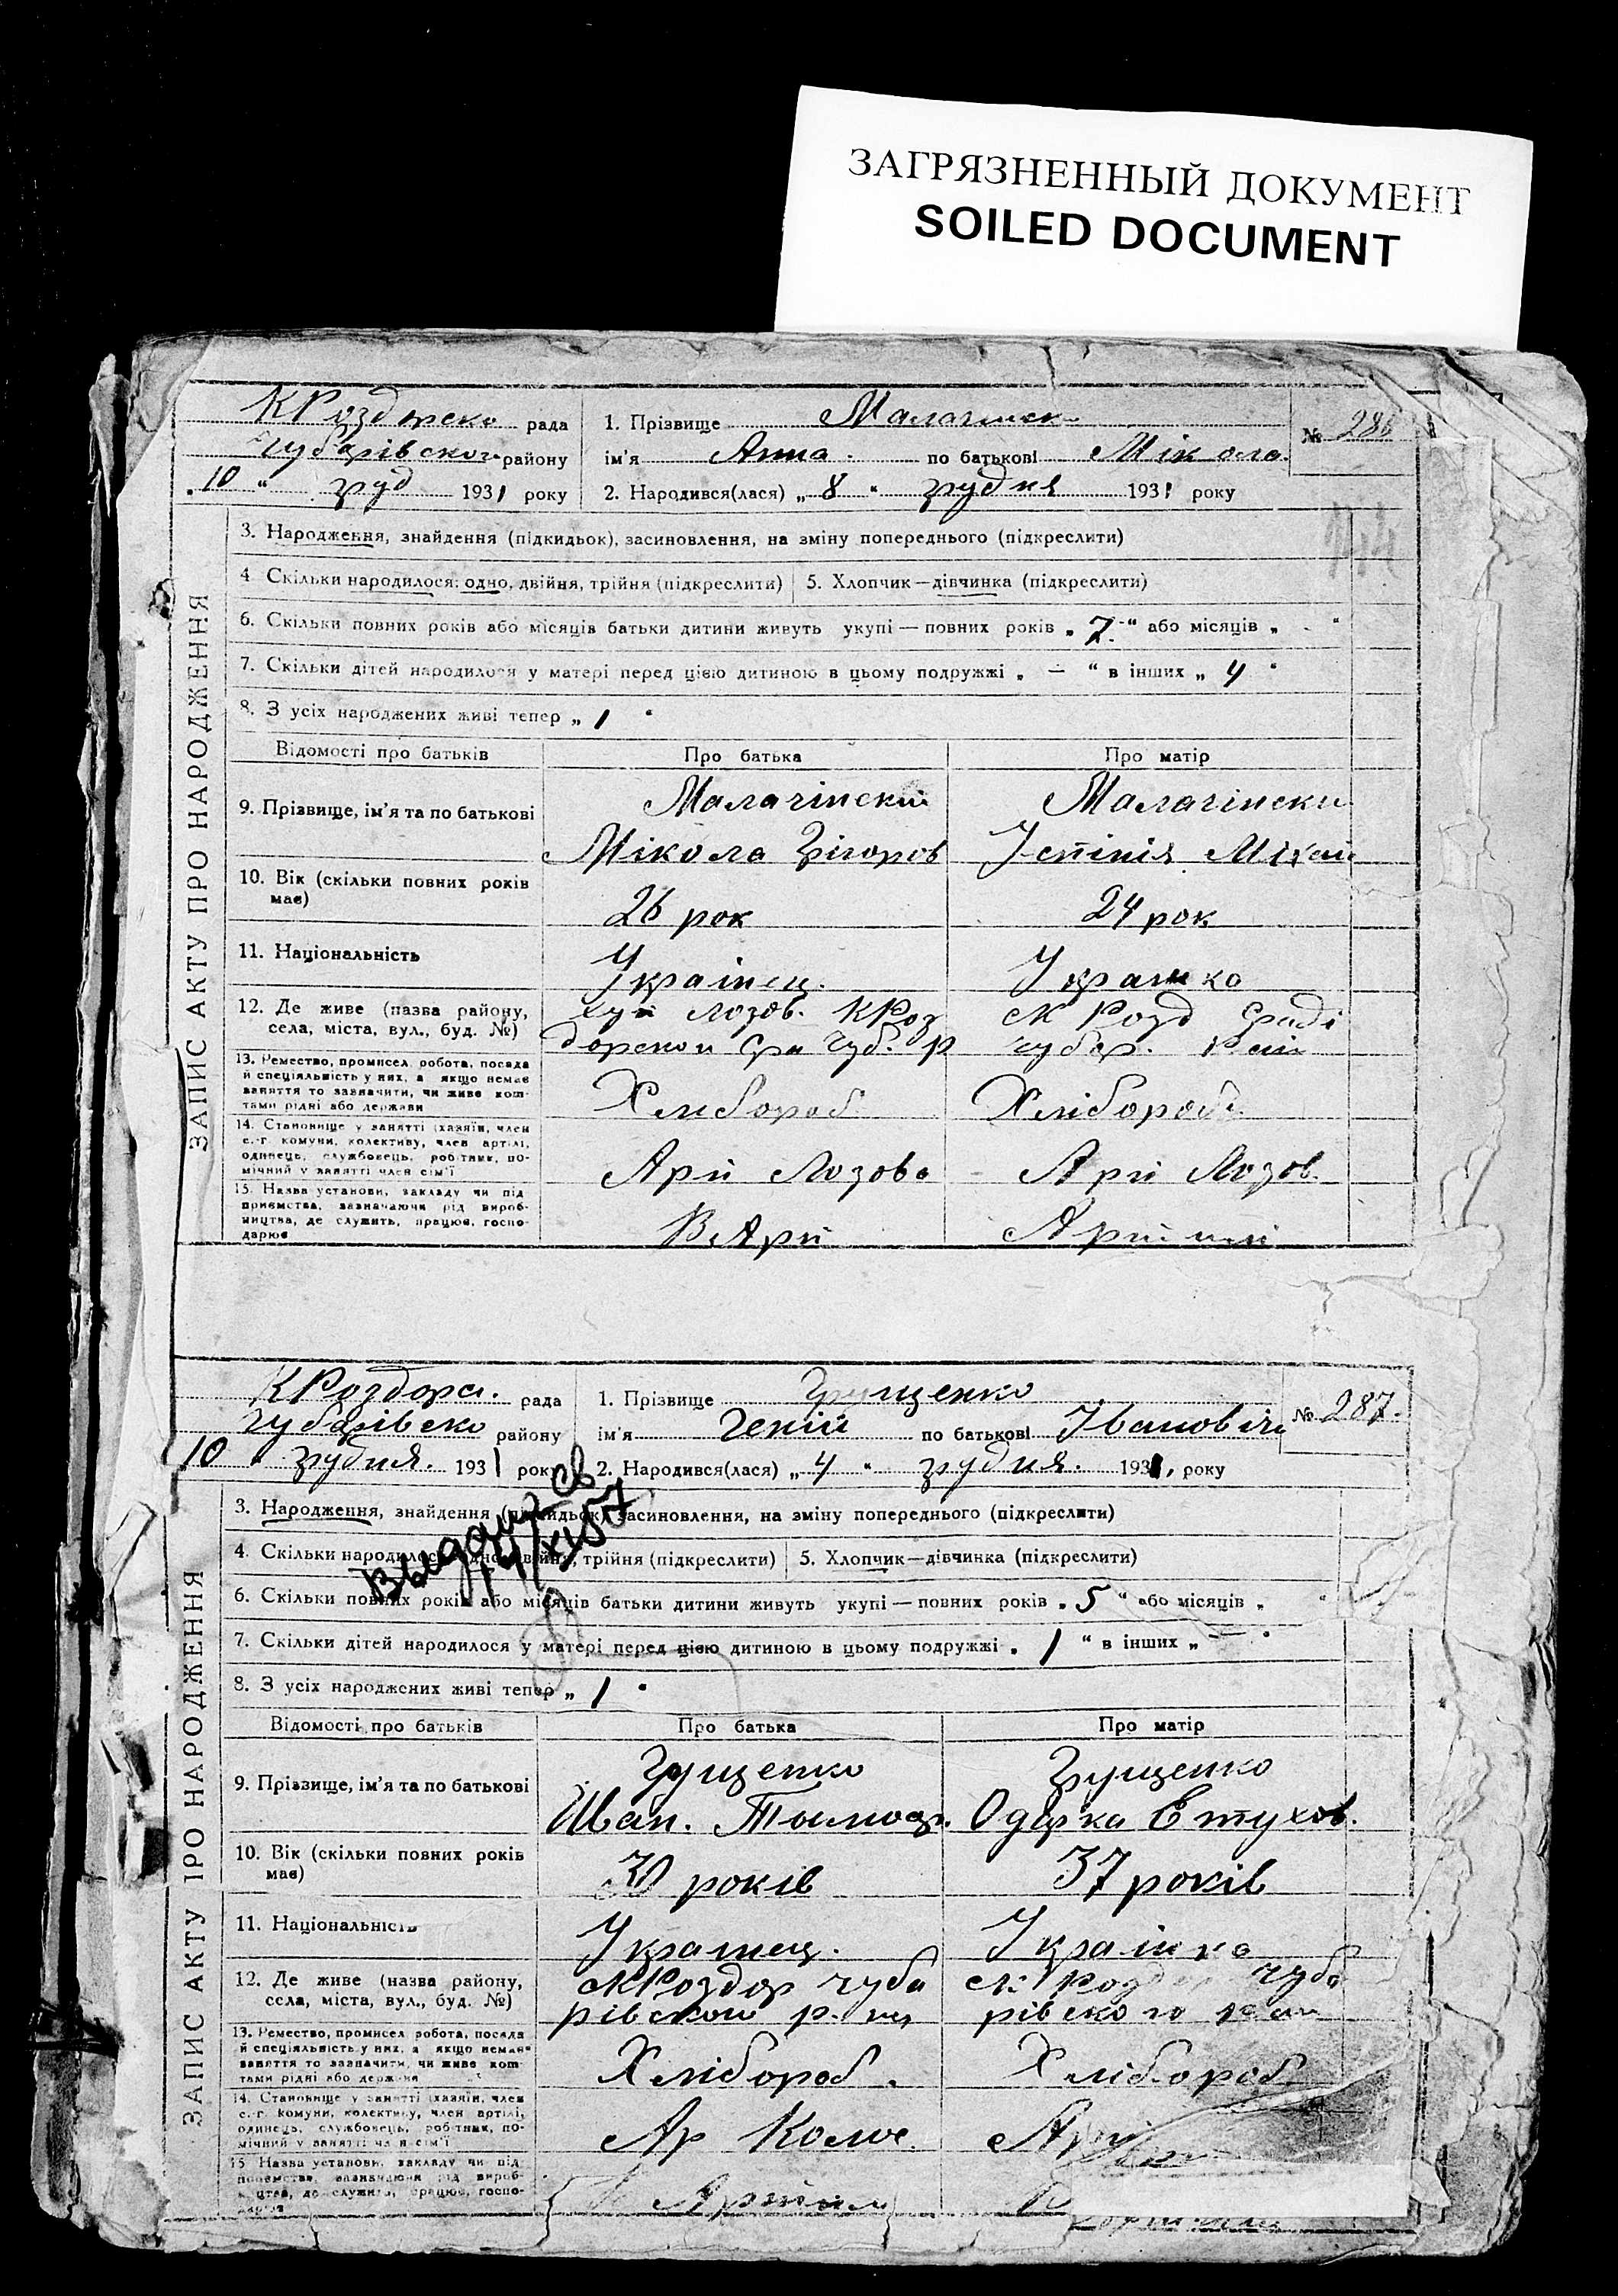 ЗАГРЯЗНЕННЫЙ ДОКУМЕНТ
SOILED DOCUMENT
ЗАПИС АКТУ ПРО НАРОДЖЕННЯ
рада
Чубарівског району
„10“ груд 1931 року
1. Прізвище
ім'я Анна по батькові Мікола
2. Народився(лася) „8“ грудня 1931 року
№ 286
144
3. Народження, знайдення (підкидьок), засиновлення, на зміну попереднього (підкреслити)
4. Скільки народилося: одно, двійня, трійня (підкреслити) 5. Хлопчик—дівчинка (підкреслити)
6. Скільки повних років або місяців батьки дитини живуть укупі — повних років „7“ або місяців „ “
7. Скільки дітей народилося у матері перед цією дитиною в цьому подружжі „—“ в інших „4“
8. З усіх народжених живі тепер „1“
Відомості про батьків Про батька Про матір
9. Прізвище, ім'я та по батькові
Малачінский Малачінски
Мікола Грігоров Устінія Міхай
10. Вік (скільки повних років має)
26 рок 24 рок
11. Національність
Украінец. Украинко
12. Де живе (назва району, села, міста, вул., буд. №)
лозов. КРоз
чубар.
13. Ремество, промисел, робота, посада
й спеціяльність у них, а якщо немає
заняття то зазначити, чи живе кош-
тами рідні або держави
Хлібороб Хлібороб
14. Становище у занятті (хазяїн, член
с.-г. комуни, колективу, член артілі,
одинець, службовець, робітник, по-
мічний у занятті член сім'ї
Арй Лозова Арй Лозов.
15. Назва установи, закладу чи під
приємства, зазначаючи рід вироб-
ництва, де служить, працює, госпо-
дарює
В Арй
ЗАПИС АКТУ ПРО НАРОДЖЕННЯ
КРоздорск. рада
Чубарівско району
10 „ грудня. 1931 року
1. Прізвище Грущенко
ім'я Геній по батькові Іванович
2. Народився(лася) „4“ грудня. 1931, року
№ 287.
Выдано св
14/XI57
3. Народження, знайдення (підкидьок), засиновлення, на зміну попереднього (підкреслити)
4. Скільки народилося: одно, двійня, трійня (підкреслити) 5. Хлопчик—дівчинка (підкреслити)
6. Скільки повних років або місяців батьки дитини живуть укупі — повних років „5“ або місяців „ “
7. Скільки дітей народилося у матері перед цією дитиною в цьому подружжі „1“ в інших „—“
8. З усіх народжених живі тепер „1“
Відомості про батьків Про батька Про матір
9. Прізвище, ім'я та по батькові
Грущенко Грущенко
Иван. Тымош. Одарка Евтухов.
10. Вік (скільки повних років має)
30 років 37 років
11. Національність
Украінец. Украінка
12. Де живе (назва району, села, міста, вул., буд. №)
сКРоздор чуба с.К Розд чуба
рівского рівского
13. Ремество, промисел робота, посада
й спеціяльність у них, а якщо немає
заняття то зазначити, чи живе кош-
тами рідні або держави
Хлібороб. Хлібороб
14. Становище у занятті (хазяїн, член
с.-г. комуни, колективу, член артілі,
одинець, службовець, робітник, по-
мічний у занятті член сім'ї
Ар
15. Назва установи, закладу чи під
приємства, зазначаючи рід вироб-
ництва, де служить, працює, госпо-
дарює